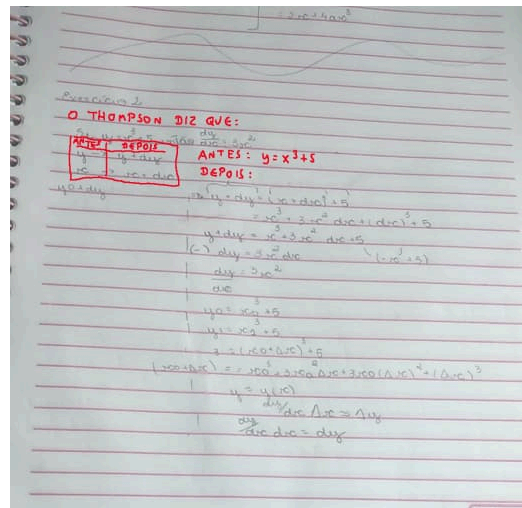 = 3x²+4ax³
Exercício 2
O THOMPSON DIZ QUE:
Se y = x³+5 dy/dx = 3x²
ANTES DEPOIS
y → y+dy
x → x+dx
ANTES: y=x³+5
DEPOIS:
y0+dy
y+dy = (x+dx)³+5
= x³+3x² dx+(dx)³+5
y+dy = x³+3x² dx+5
(-) dy = 3x² dx (-x³+5)
dy/dx = 3x²
y0 = x0³+5
y1 = x1³+5
= (x0+Δx)³+5
(x0+Δx) = x0³+3x0²Δx+3x0(Δx)²+(Δx)³
y = y(x)
dy/dx Δx = Δy
dy/dx dx = dy